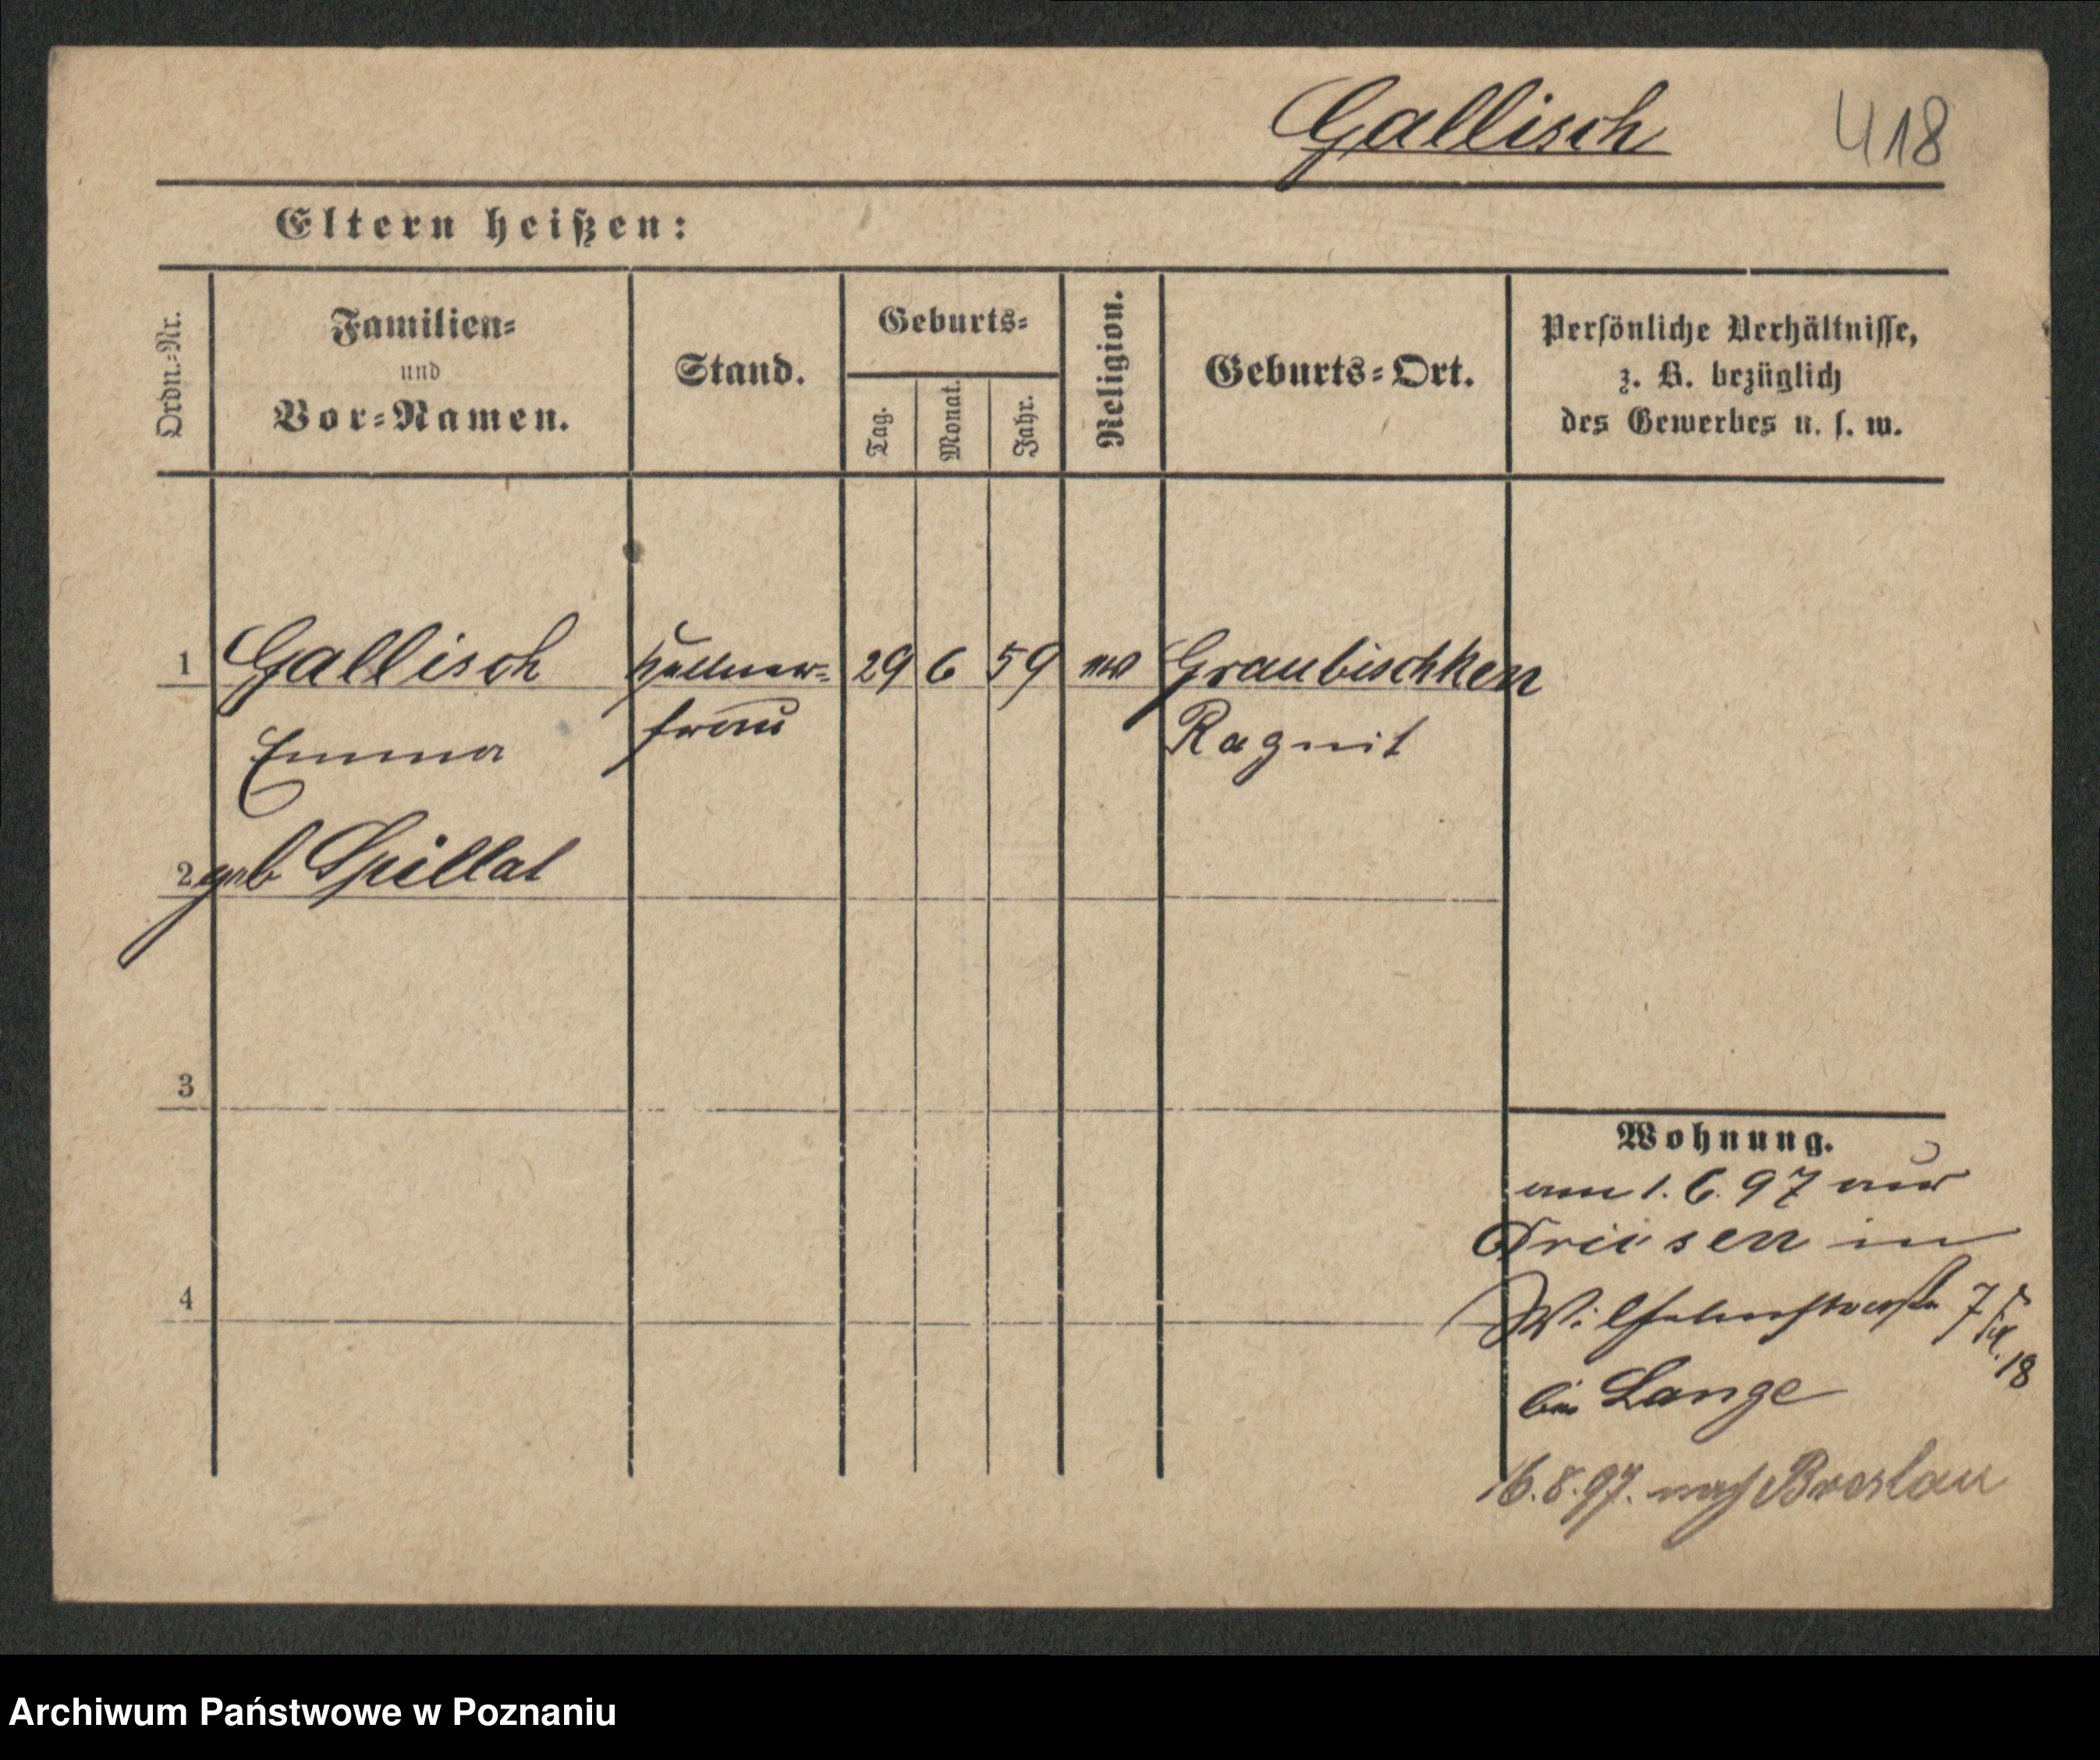 Gallisch 418
Eltern heißen:
Ordn.-Nr.
Familien-
und
Vor-Namen.
Stand.
Geburts-
Tag.
Monat.
Jahr.
Religion.
Geburts-Ort.
Persönliche Verhältnisse,
z. B. bezüglich
des Gewerbes u. s. w.
1 Gallisch Kellner- 29 6 59 ev Graubischken
Emma frau Ragnit
2 geb Spillat
3
Wohnung.
am 1. 6. 97 aus
Driesen in
4
Wilhelmstraße 7
18
bei Lange
16.8.97. nach Breslau
Archiwum Państwowe w Poznaniu